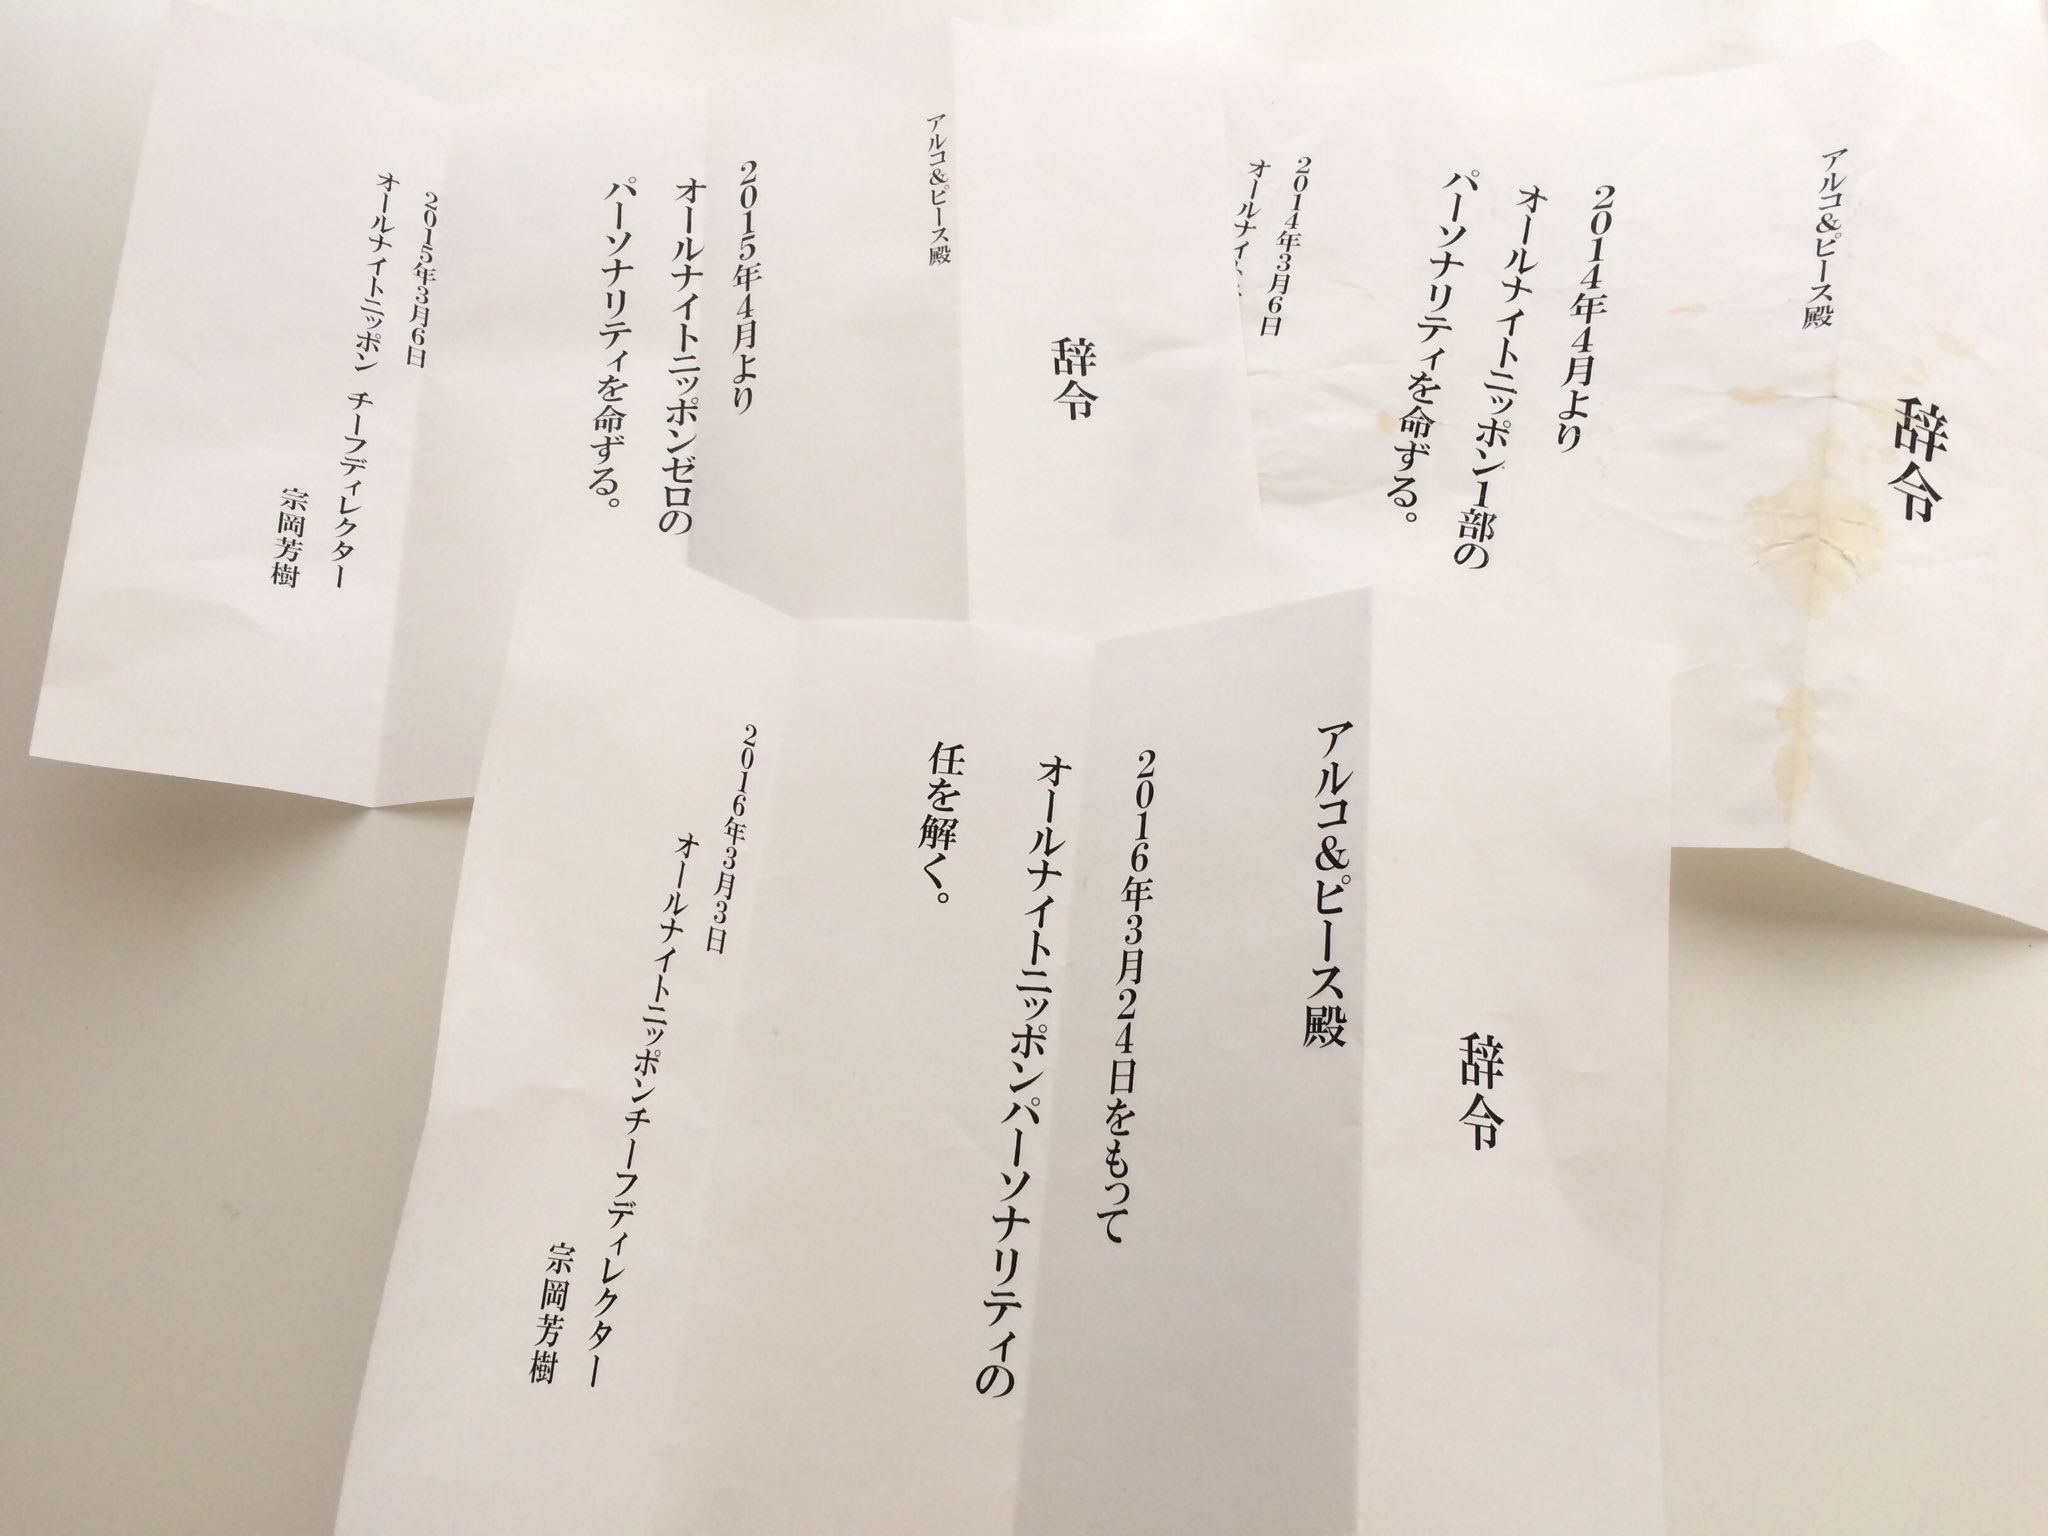 辞令
アルコ&ピース殿
2014年4月より
オールナイトニッポン1部の
パーソナリティを命ずる。
2014年3月6日
オールナイト
辞令
アルコ&ピース殿
2015年4月より
オールナイトニッポンゼロの
パーソナリティを命ずる。
2015年3月6日
オールナイトニッポン チーフディレクター
宗岡芳樹
辞令
アルコ&ピース殿
2016年3月24日をもって
オールナイトニッポンパーソナリティの
任を解く。
2016年3月3日
オールナイトニッポンチーフディレクター
宗岡芳樹